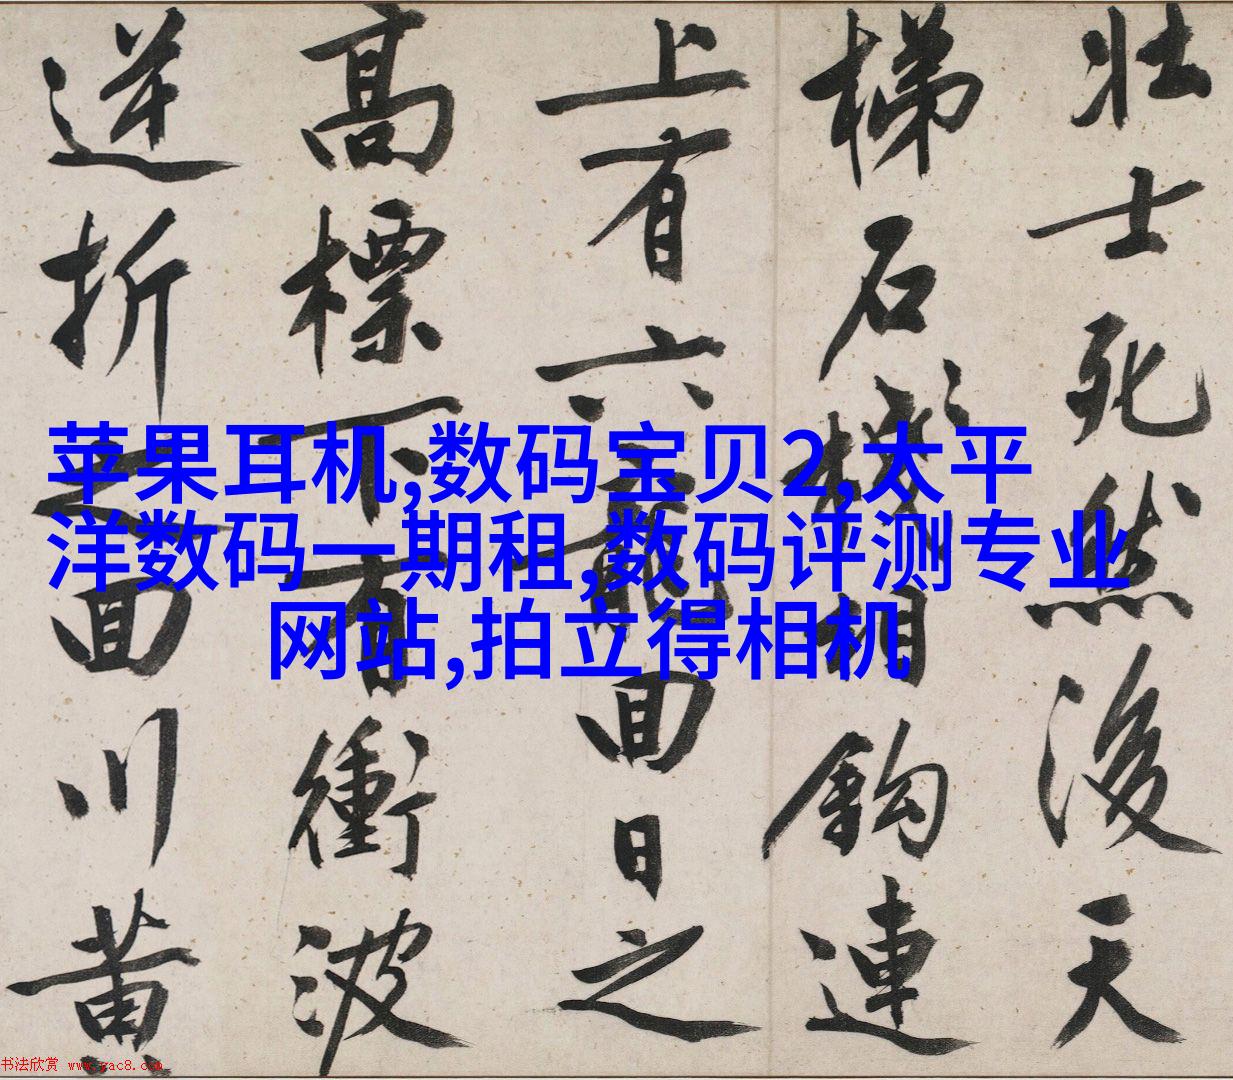 壯士死然後天
梯石棧相鈎連
上有六龍回日之
高標下有衝波
逆折之回川黃
苹果耳机,数码宝贝2,太平
洋数码一期租,数码评测专业
网站,拍立得相机
书法欣赏 www.yac8.com